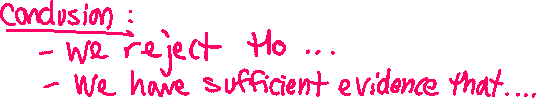 Conclusion :
- We reject Ho ...
- We have sufficient evidence that....